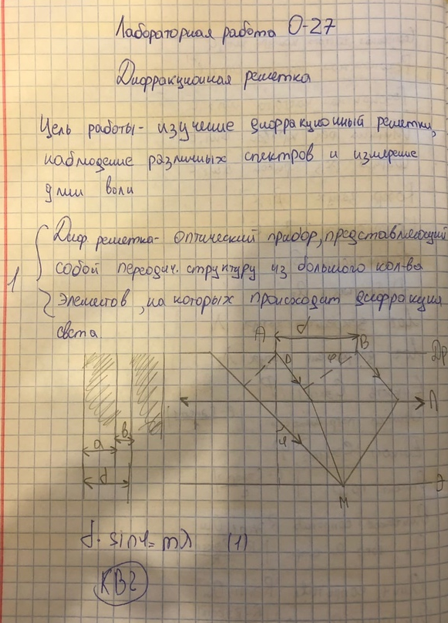 Лабораторная работа О-27
Дифракционная решетка
Цель работы - изучение дифракционный решетки,
наблюдение различных спектров и измерение
длин волн
1
Диф. решетка - оптический прибор, представляющий
собой переодич. структуру из большого кол-ва
элементов, на которых происходит дифракция
света
d
A B Др
D φ
Л
в
a
φ
d
Э
M
d · sinφ = mλ (1)
КВ2